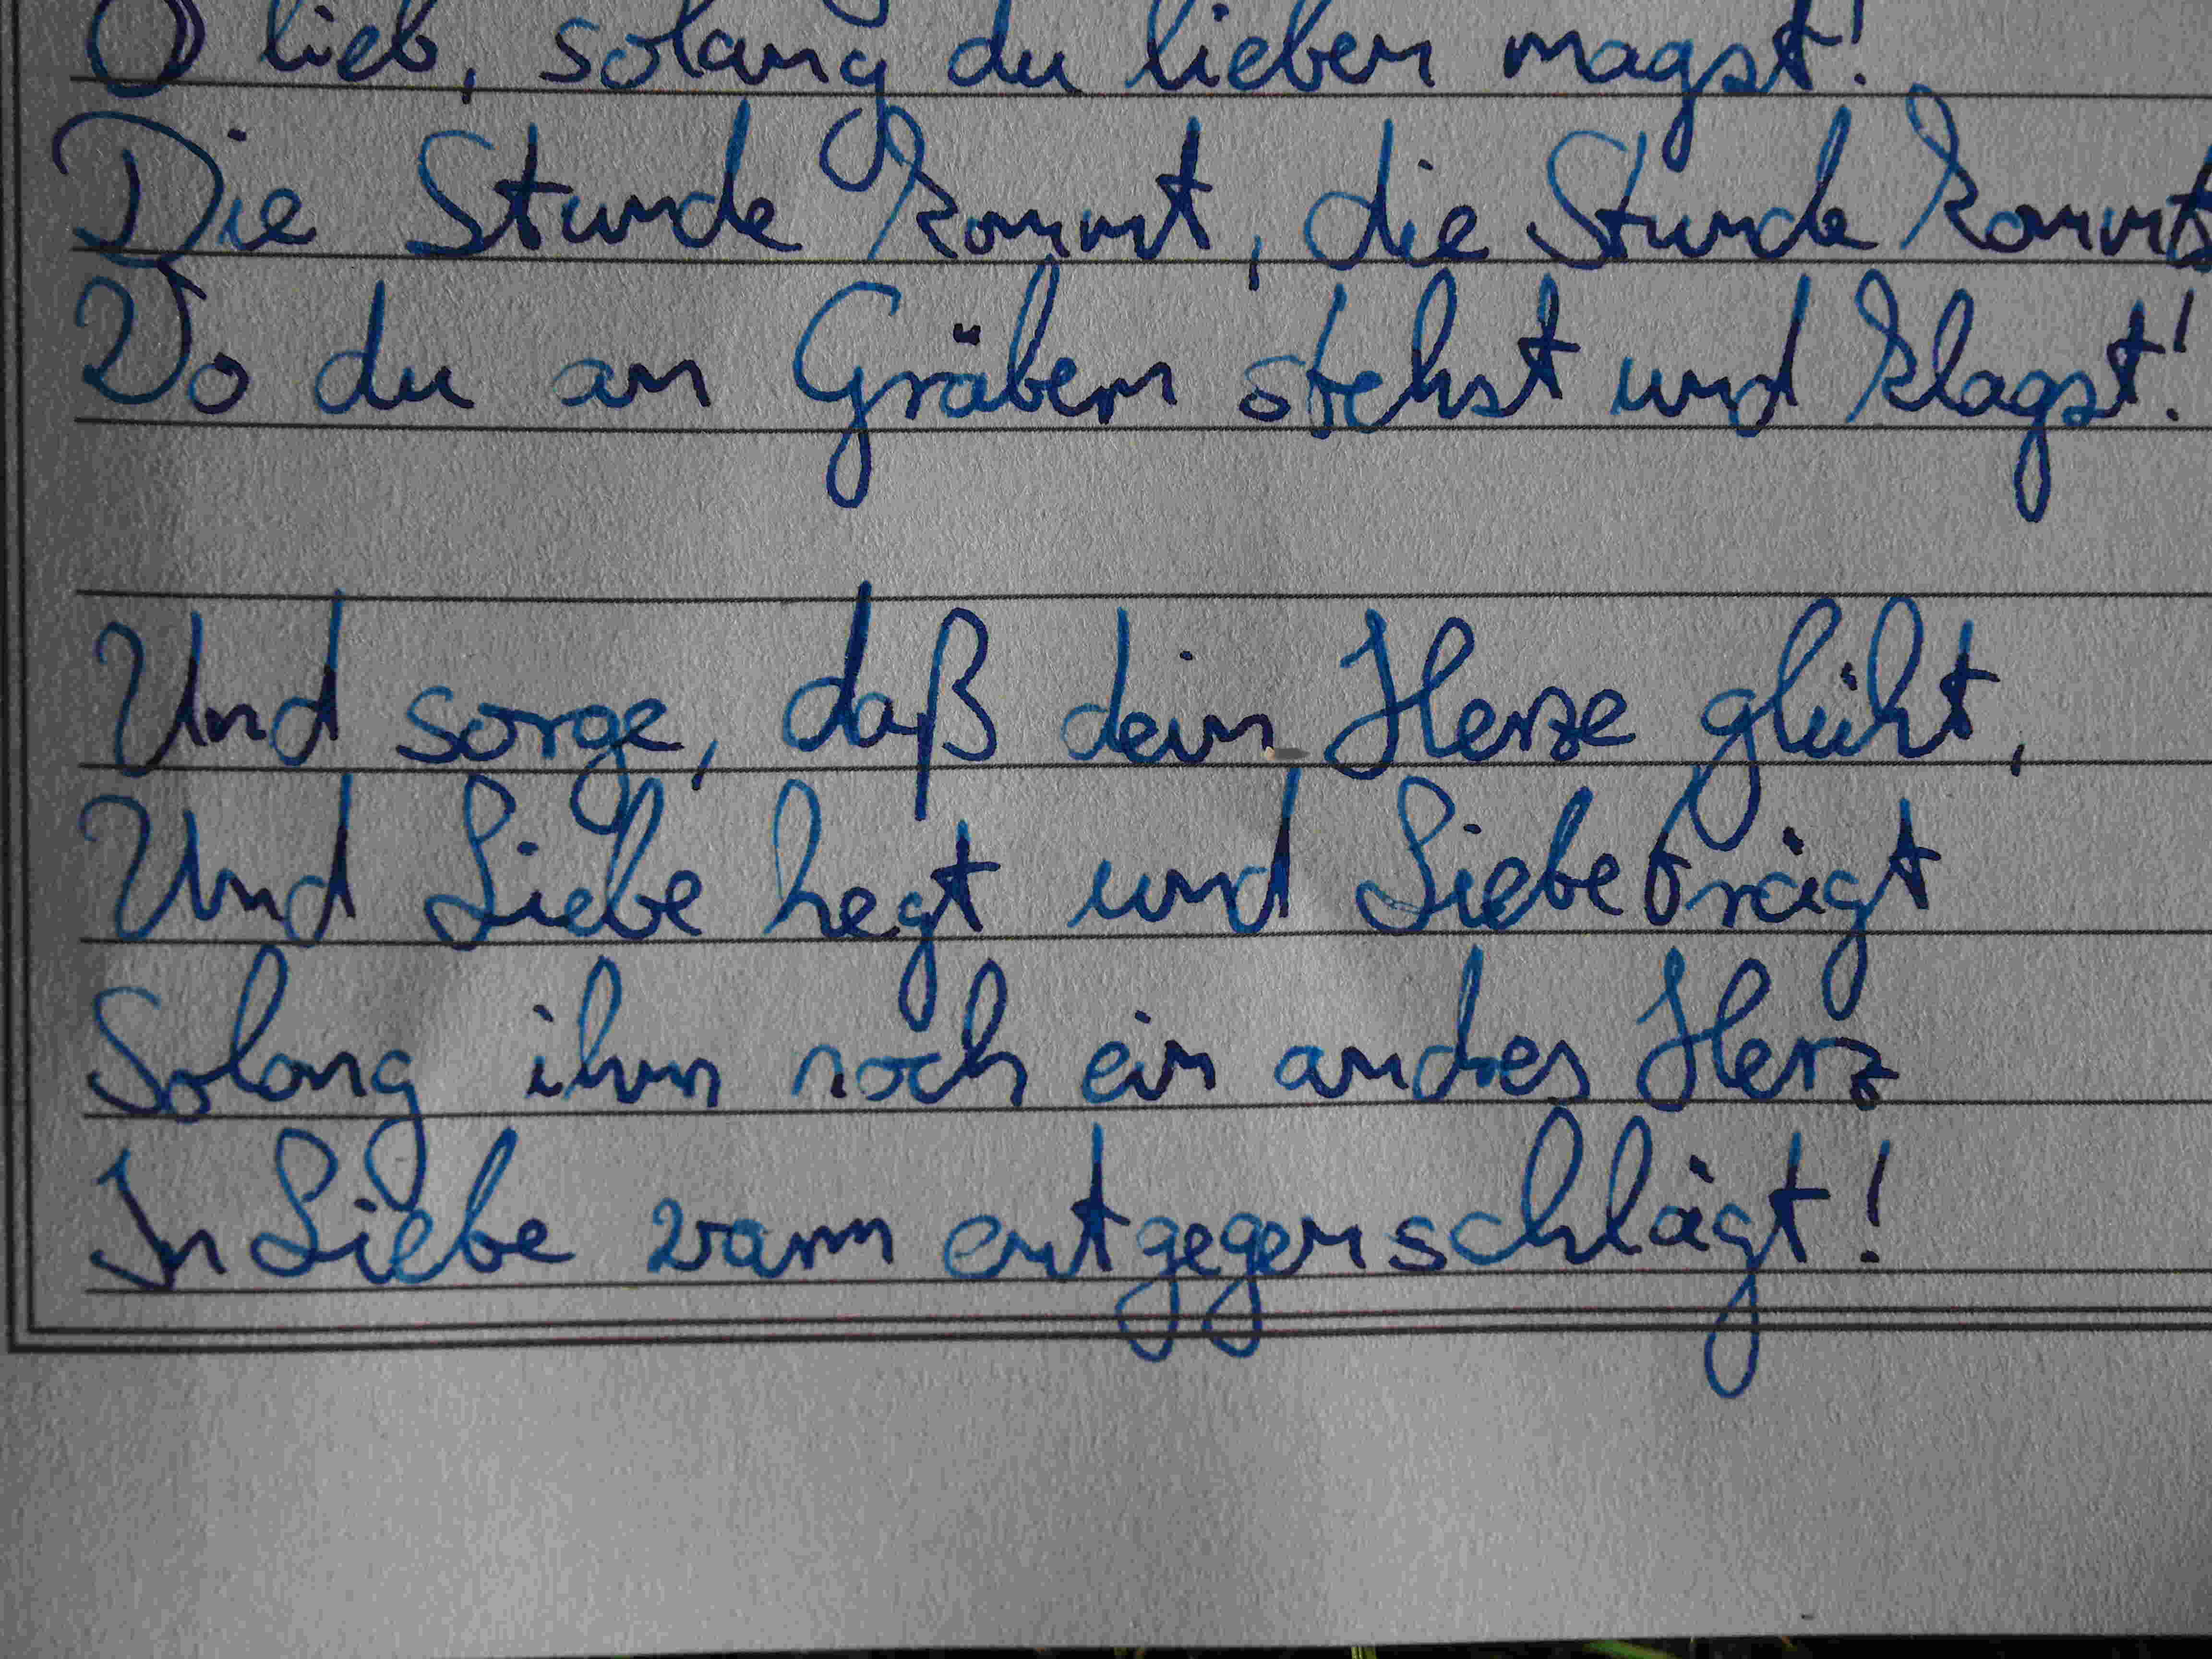 O lieb, solang du lieben magst!
Die Stunde kommt, die Stunde kommt,
Wo du an Gräbern stehst und klagst!
Und sorge, daß dein Herze glüht,
Und Liebe hegt und Liebe trägt
Solang ihm noch ein andres Herz
In Liebe warm entgegenschlägt!